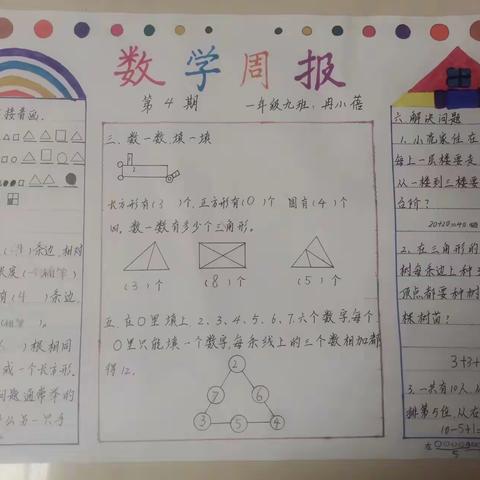 数学周报
第4期 一年级九班:冉小蓓
接着画。
(一)条边,相对
有(4)条边
)根相同
成一个长方形。
问题通常举的
只手
三、数一数,填一填
长方形有(3)个,正方形有(0)个 圆有(4)个
四、数一数有多少个三角形。
(3)个 (8)个 (5)个
五、在〇里填上2、3、4、5、6、7六个数字,每个
〇里只能填一个数字,每条线上的三个数相加都
得12。
2
7 6
3 5 4
六、解决问题
1、小亮家住在
每上一层楼要走
从一楼到三楼要
台阶?
20+20=40
2、在三角形的
树每条边上种3
顶点都要种树
棵树苗?
3+3+
3、一共有10人,从
排第5位,从右
10-5+1=
左
5